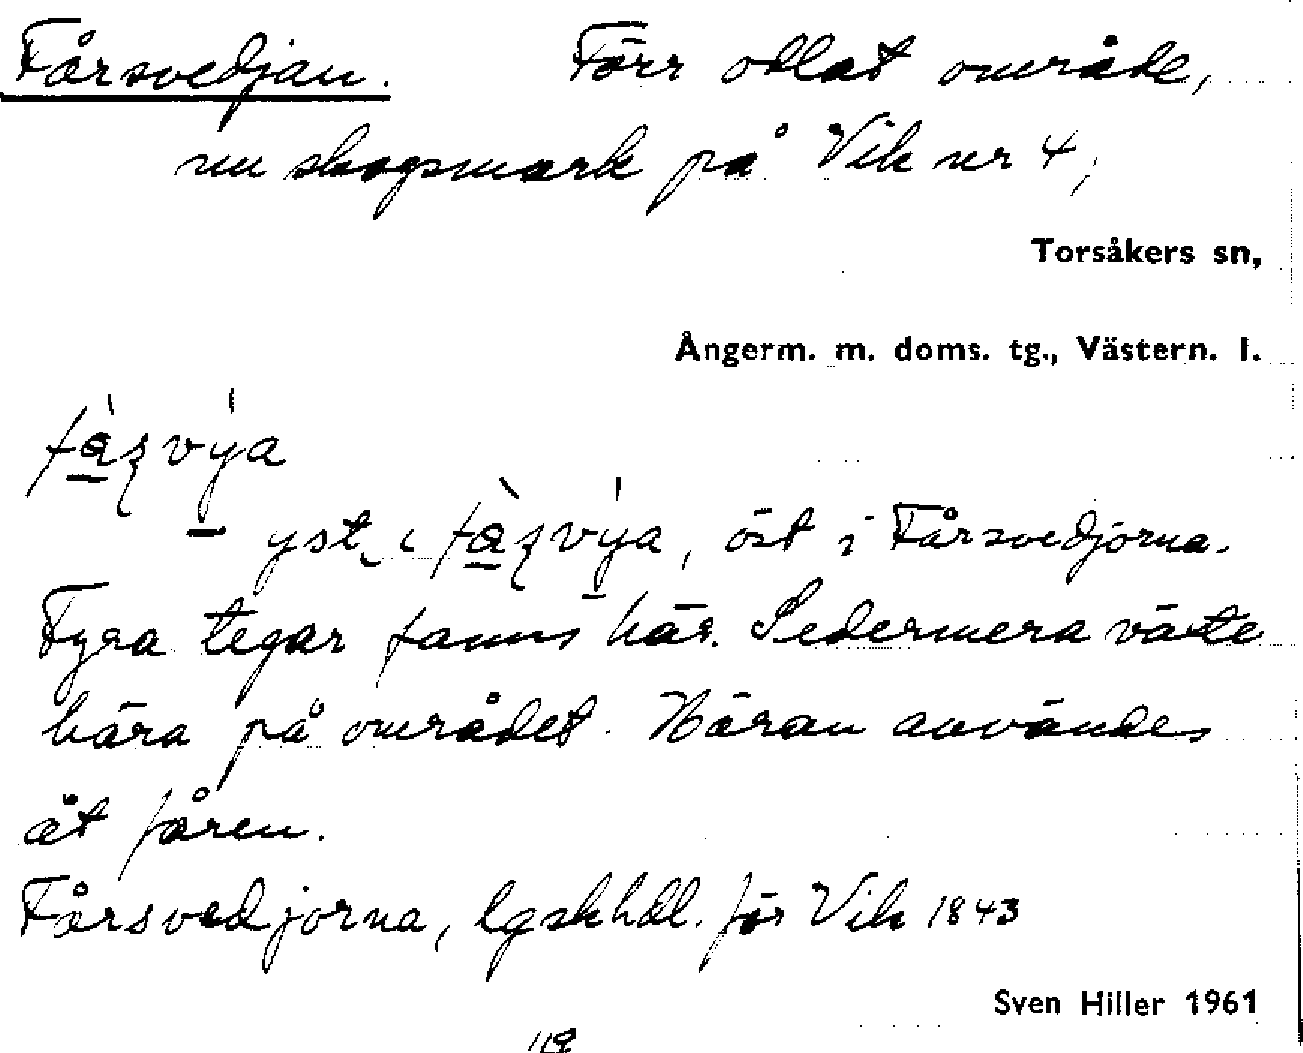 Fårsvedjan. Förr odlat område,
nu skogsmark på Vik nr 4,
Torsåkers sn,
Ångerm. m. doms. tg., Västern. l.
yst i , öst i Fårsvedjorna.
Fyra tegar fanns här. Sedermera växte
hära på området. Häran användes
åt fåren.
Fårsvedjorna, lgskhdl. för Vik 1843
Sven Hiller 1961